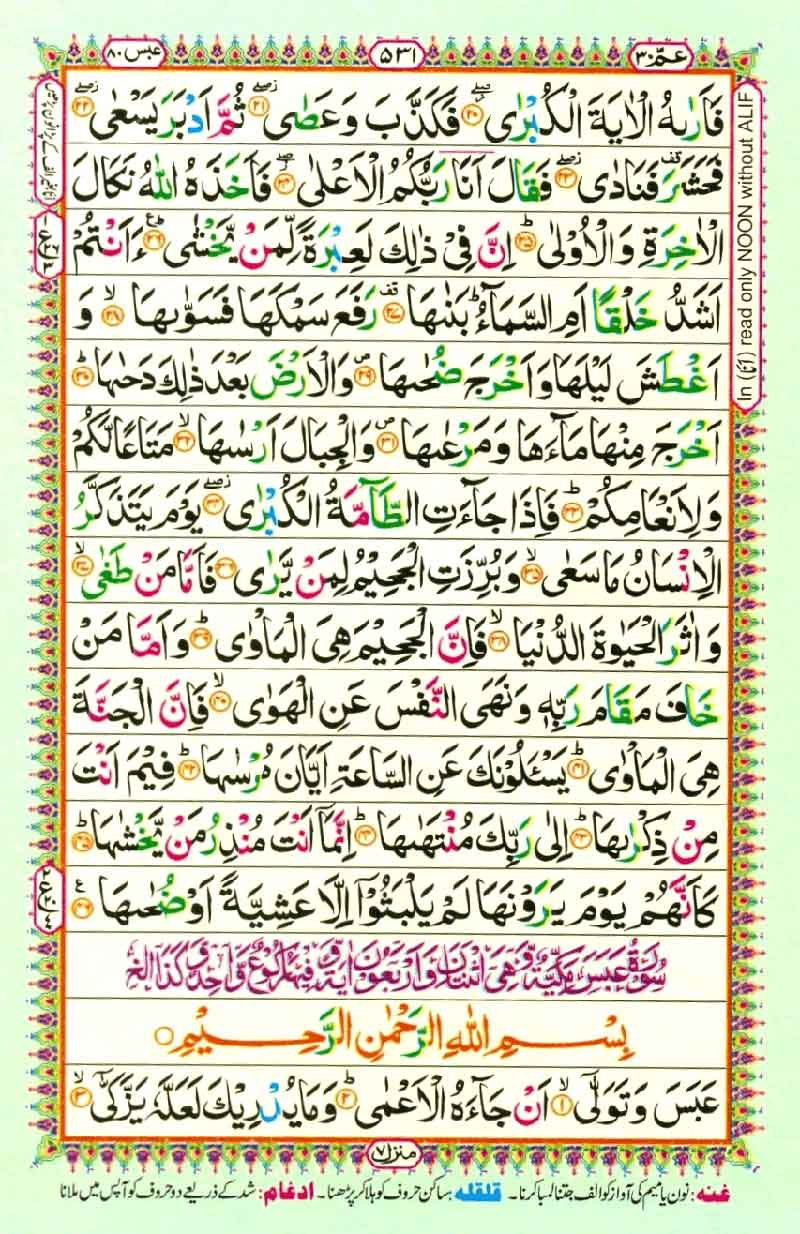 عمّ ٣٠
٥٣١
عبس ٨٠
فَاَرٰىهُ الْاٰيَةَ الْكُبْرٰى ۖ ﴿٢٠﴾ فَكَذَّبَ وَعَصٰى ۖ ﴿٢١﴾ ثُمَّ اَدْبَرَ يَسْعٰى ۖ ﴿٢٢﴾
فَحَشَرَ فَنَادٰى ۖ ﴿٢٣﴾ فَقَالَ اَنَا رَبُّكُمُ الْاَعْلٰى ۖ ﴿٢٤﴾ فَاَخَذَهُ اللّٰهُ نَكَالَ
الْاٰخِرَةِ وَالْاُوْلٰى ؕ ﴿٢٥﴾ اِنَّ فِيْ ذٰلِكَ لَعِبْرَةً لِّمَنْ يَّخْشٰى ؕ ﴿٢٦﴾ ءَاَنْتُمْ
اَشَدُّ خَلْقًا اَمِ السَّمَآءُ ؕ بَنٰىهَا ۗ ﴿٢٧﴾ رَفَعَ سَمْكَهَا فَسَوّٰىهَا ۙ ﴿٢٨﴾ وَ
اَغْطَشَ لَيْلَهَا وَاَخْرَجَ ضُحٰىهَا ۪ ﴿٢٩﴾ وَالْاَرْضَ بَعْدَ ذٰلِكَ دَحٰىهَا ؕ ﴿٣٠﴾
اَخْرَجَ مِنْهَا مَآءَهَا وَمَرْعٰىهَا ۪ ﴿٣١﴾ وَالْجِبَالَ اَرْسٰىهَا ۙ ﴿٣٢﴾ مَتَاعًا لَّكُمْ
وَلِاَنْعَامِكُمْ ؕ ﴿٣٣﴾ فَاِذَا جَآءَتِ الطَّآمَّةُ الْكُبْرٰى ۖ ﴿٣٤﴾ يَوْمَ يَتَذَكَّرُ
الْاِنْسَانُ مَا سَعٰى ۙ ﴿٣٥﴾ وَبُرِّزَتِ الْجَحِيْمُ لِمَنْ يَّرٰى ﴿٣٦﴾ فَاَمَّا مَنْ طَغٰى ۙ ﴿٣٧﴾
وَاٰثَرَ الْحَيٰوةَ الدُّنْيَا ۙ ﴿٣٨﴾ فَاِنَّ الْجَحِيْمَ هِيَ الْمَاْوٰى ؕ ﴿٣٩﴾ وَاَمَّا مَنْ
خَافَ مَقَامَ رَبِّهٖ وَنَهَى النَّفْسَ عَنِ الْهَوٰى ۙ ﴿٤٠﴾ فَاِنَّ الْجَنَّةَ
هِيَ الْمَاْوٰى ؕ ﴿٤١﴾ يَسْـَٔلُوْنَكَ عَنِ السَّاعَةِ اَيَّانَ مُرْسٰىهَا ؕ ﴿٤٢﴾ فِيْمَ اَنْتَ
مِنْ ذِكْرٰىهَا ؕ ﴿٤٣﴾ اِلٰى رَبِّكَ مُنْتَهٰىهَا ؕ ﴿٤٤﴾ اِنَّمَآ اَنْتَ مُنْذِرُ مَنْ يَّخْشٰىهَا ؕ ﴿٤٥﴾
كَاَنَّهُمْ يَوْمَ يَرَوْنَهَا لَمْ يَلْبَثُوْٓا اِلَّا عَشِيَّةً اَوْ ضُحٰىهَا ﴿٤٦﴾
سُوْرَةُ عَبَسَ مَكِّيَّةٌ وَّهِيَ اثْنَتَانِ وَاَرْبَعُوْنَ اٰيَةً وَّفِيْهَا رُكُوْعٌ وَّاحِدٌ
بِسْمِ اللّٰهِ الرَّحْمٰنِ الرَّحِيْمِ ○
عَبَسَ وَتَوَلّٰىٓ ۙ ﴿١﴾ اَنْ جَآءَهُ الْاَعْمٰى ؕ ﴿٢﴾ وَمَا يُدْرِيْكَ لَعَلَّهٗ يَزَّكّٰىٓ ۙ ﴿٣﴾
منزل ٧
غنه: نون یا میم کی آواز کو الف جتنا لمبا کرنا۔ قلقله: ساکن حروف کو ہلا کر پڑھنا۔ ادغام: شد کے ذریعے دو حروف کو آپس میں ملانا
In (اَنَا) read only NOON without ALIF